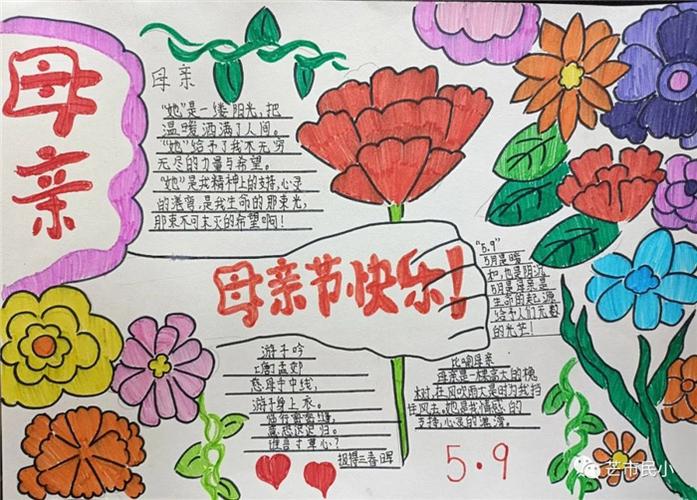 母亲
母亲
"她"是一缕阳光，把
温暖洒满了人间。
"她"给予了我不无穷
无尽的力量与希望。
"她"是我精神上的支持，心灵
的港湾，是我生命的那束光，
那束不可末灭的希望啊！
母亲节快乐！
"5.9"
5月是暖
和，也是阴沉
5月是母亲是
生命的起源
给予人们无数
的光芒！
游子吟
慈母手中线，
游子身上衣。
临行密密缝，
意恐迟迟归。
谁言寸草心？
报得三春晖
比喻母亲
母亲是一棵高大的槐
树，在风吹雨大是时为我挡
住风去。她是我情感的
支持，心灵的港湾。
5.9
芒市民小